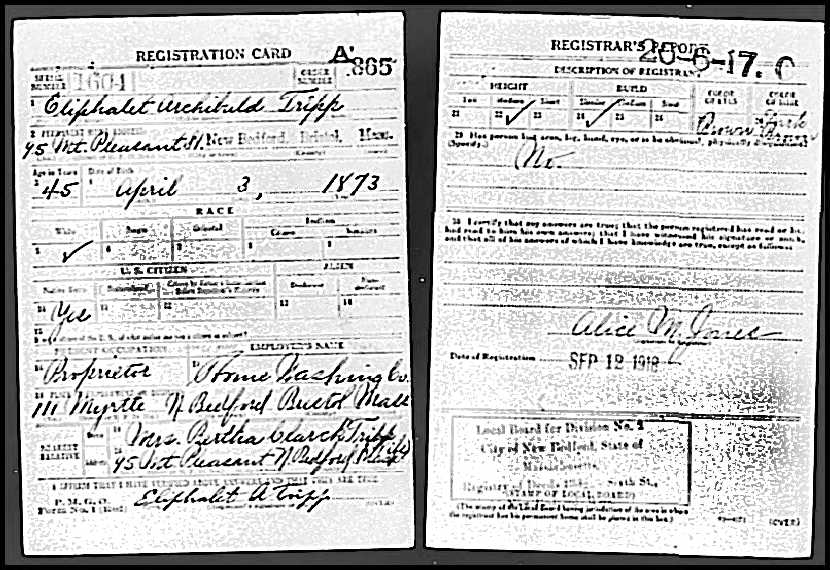 REGISTRATION CARD
SERIAL NUMBER 1604
ORDER NUMBER A 865
1 Eliphalet Archibald Tripp
2 PERMANENT HOME ADDRESS
95 Mt Pleasant St New Bedford, Bristol, Mass.
Age in Years Date of Birth
3 45 4 April 3, 1873
RACE
White Negro Oriental Indian
Citizen
5 ✓ 6 7 8 9
U. S. CITIZEN ALIEN
Native Born Naturalized Declarant Non-declarant
10 Yes 11 12 13 14
15
PRESENT OCCUPATION EMPLOYER'S NAME
16 Proprietor 17 Home Washing Co.
111 Myrtle N Bedford Bristol Mass
NEAREST RELATIVE
Name 19 Mrs. Bertha Church Tripp (Wife)
Address 20 95 Mt Pleasant N Bedford Mass
I AFFIRM THAT I HAVE VERIFIED ABOVE ANSWERS AND THAT THEY ARE TRUE
P. M. G. O.
Form No. 1 (Red)
Eliphalet A Tripp
REGISTRAR'S REPORT
20-6-17. C
DESCRIPTION OF REGISTRANT
HEIGHT BUILD COLOR OF EYES COLOR OF HAIR
Tall Medium Short Slender Medium Stout
21 22 ✓ 23 24 ✓ 25 26 27 Brown 28 Dark Brown
29 Has person lost arm, leg, hand, eye, or is he obviously physically disqualified?
(Specify.)
No
30 I certify that my answers are true; that the person registered has read or has
had read to him his own answers; that I have witnessed his signature or mark,
and that all of his answers of which I have knowledge are true, except as follows:
Alice M. Jones
Date of Registration SEP 12 1918
Local Board for Division No. 2
City of New Bedford, State of
Massachusetts
Registry of Deeds Bldg., South St.,
(STAMP OF LOCAL BOARD)
(The stamp of the Local Board having jurisdiction of the area in which
the registrant has his permanent home shall be placed in this box.)
(OVER)